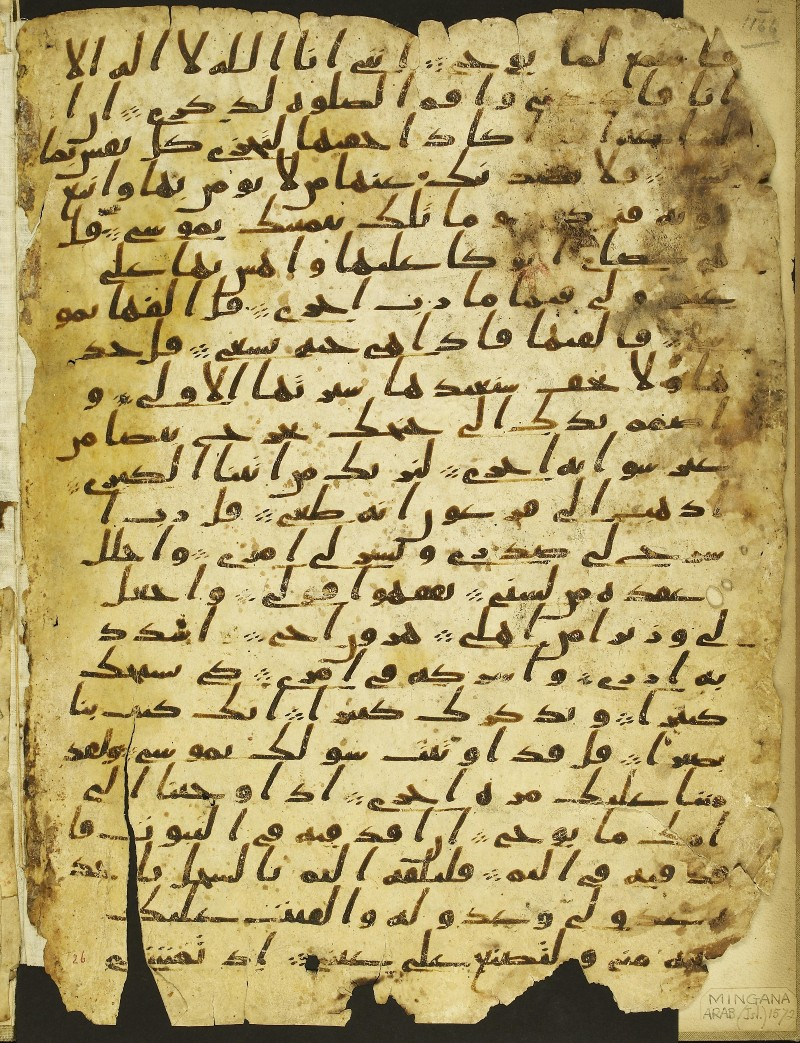 1166
فاستمع لما يوحى انني انا الله لا اله الا
انا فاعبدني واقم الصلوه لذكري ان ا
لساعه اكاد اخفيها لتجزى كل نفس بما
تسعى فلا يصدنك عنها من لا يومن بها واتبع
هويه فتردى وما تلك بيمينك يموسى قل
هي عصاي اتوكا عليها واهش بها على
غنمي ولي فيها مارب اخرى قل القها يمو
سى فالقيها فاذا هي حيه تسعى قل خذ
ها ولا تخف سنعيدها سيرتها الاولى و
اضمم يدك الى جنحك تخرج بيضا من
غير سو ايه اخرى لنريك من ايتنا الكبرى
اذهب الى فرعون انه طغى قل رب ا
شرح لي صدري ويسر لي امري واحلل
عقده من لسني يفقهوا قولي واجعل
لي وزيرا من اهلي هرون اخي اشدد
به ازري واشركه في امري كي نسبحك
كثيرا ونذكرك كثيرا انك كنت بنا
بصيرا قل قد اوتيت سولك يموسى ولقد
مننا عليك مره اخرى اذ اوحينا الى
امك ما يوحى ان اقذفيه في التبوت فا
قذفيه في اليم فليلقه اليم بالسحل ياخذ
ه عدو لي وعدو له والقيت عليك
محبه مني ولتصنع على عيني اذ تمشي
26
MINGANA
ARAB.(Isl.)1572